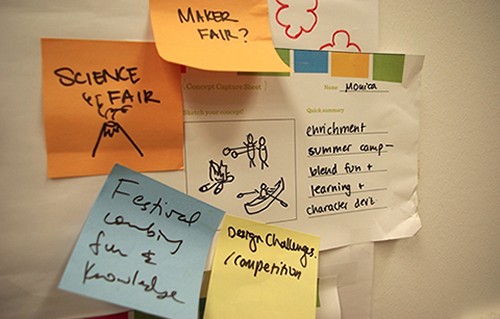 MAKER
FAIR?
SCIENCE
FAIR
Concept Capture Sheet
Name Monica
Sketch your concept!
Quick summary
enrichment
summer camp –
blend fun +
learning +
character dev't
Festival
combing
fun &
knowledge
Design Challenges
/competition